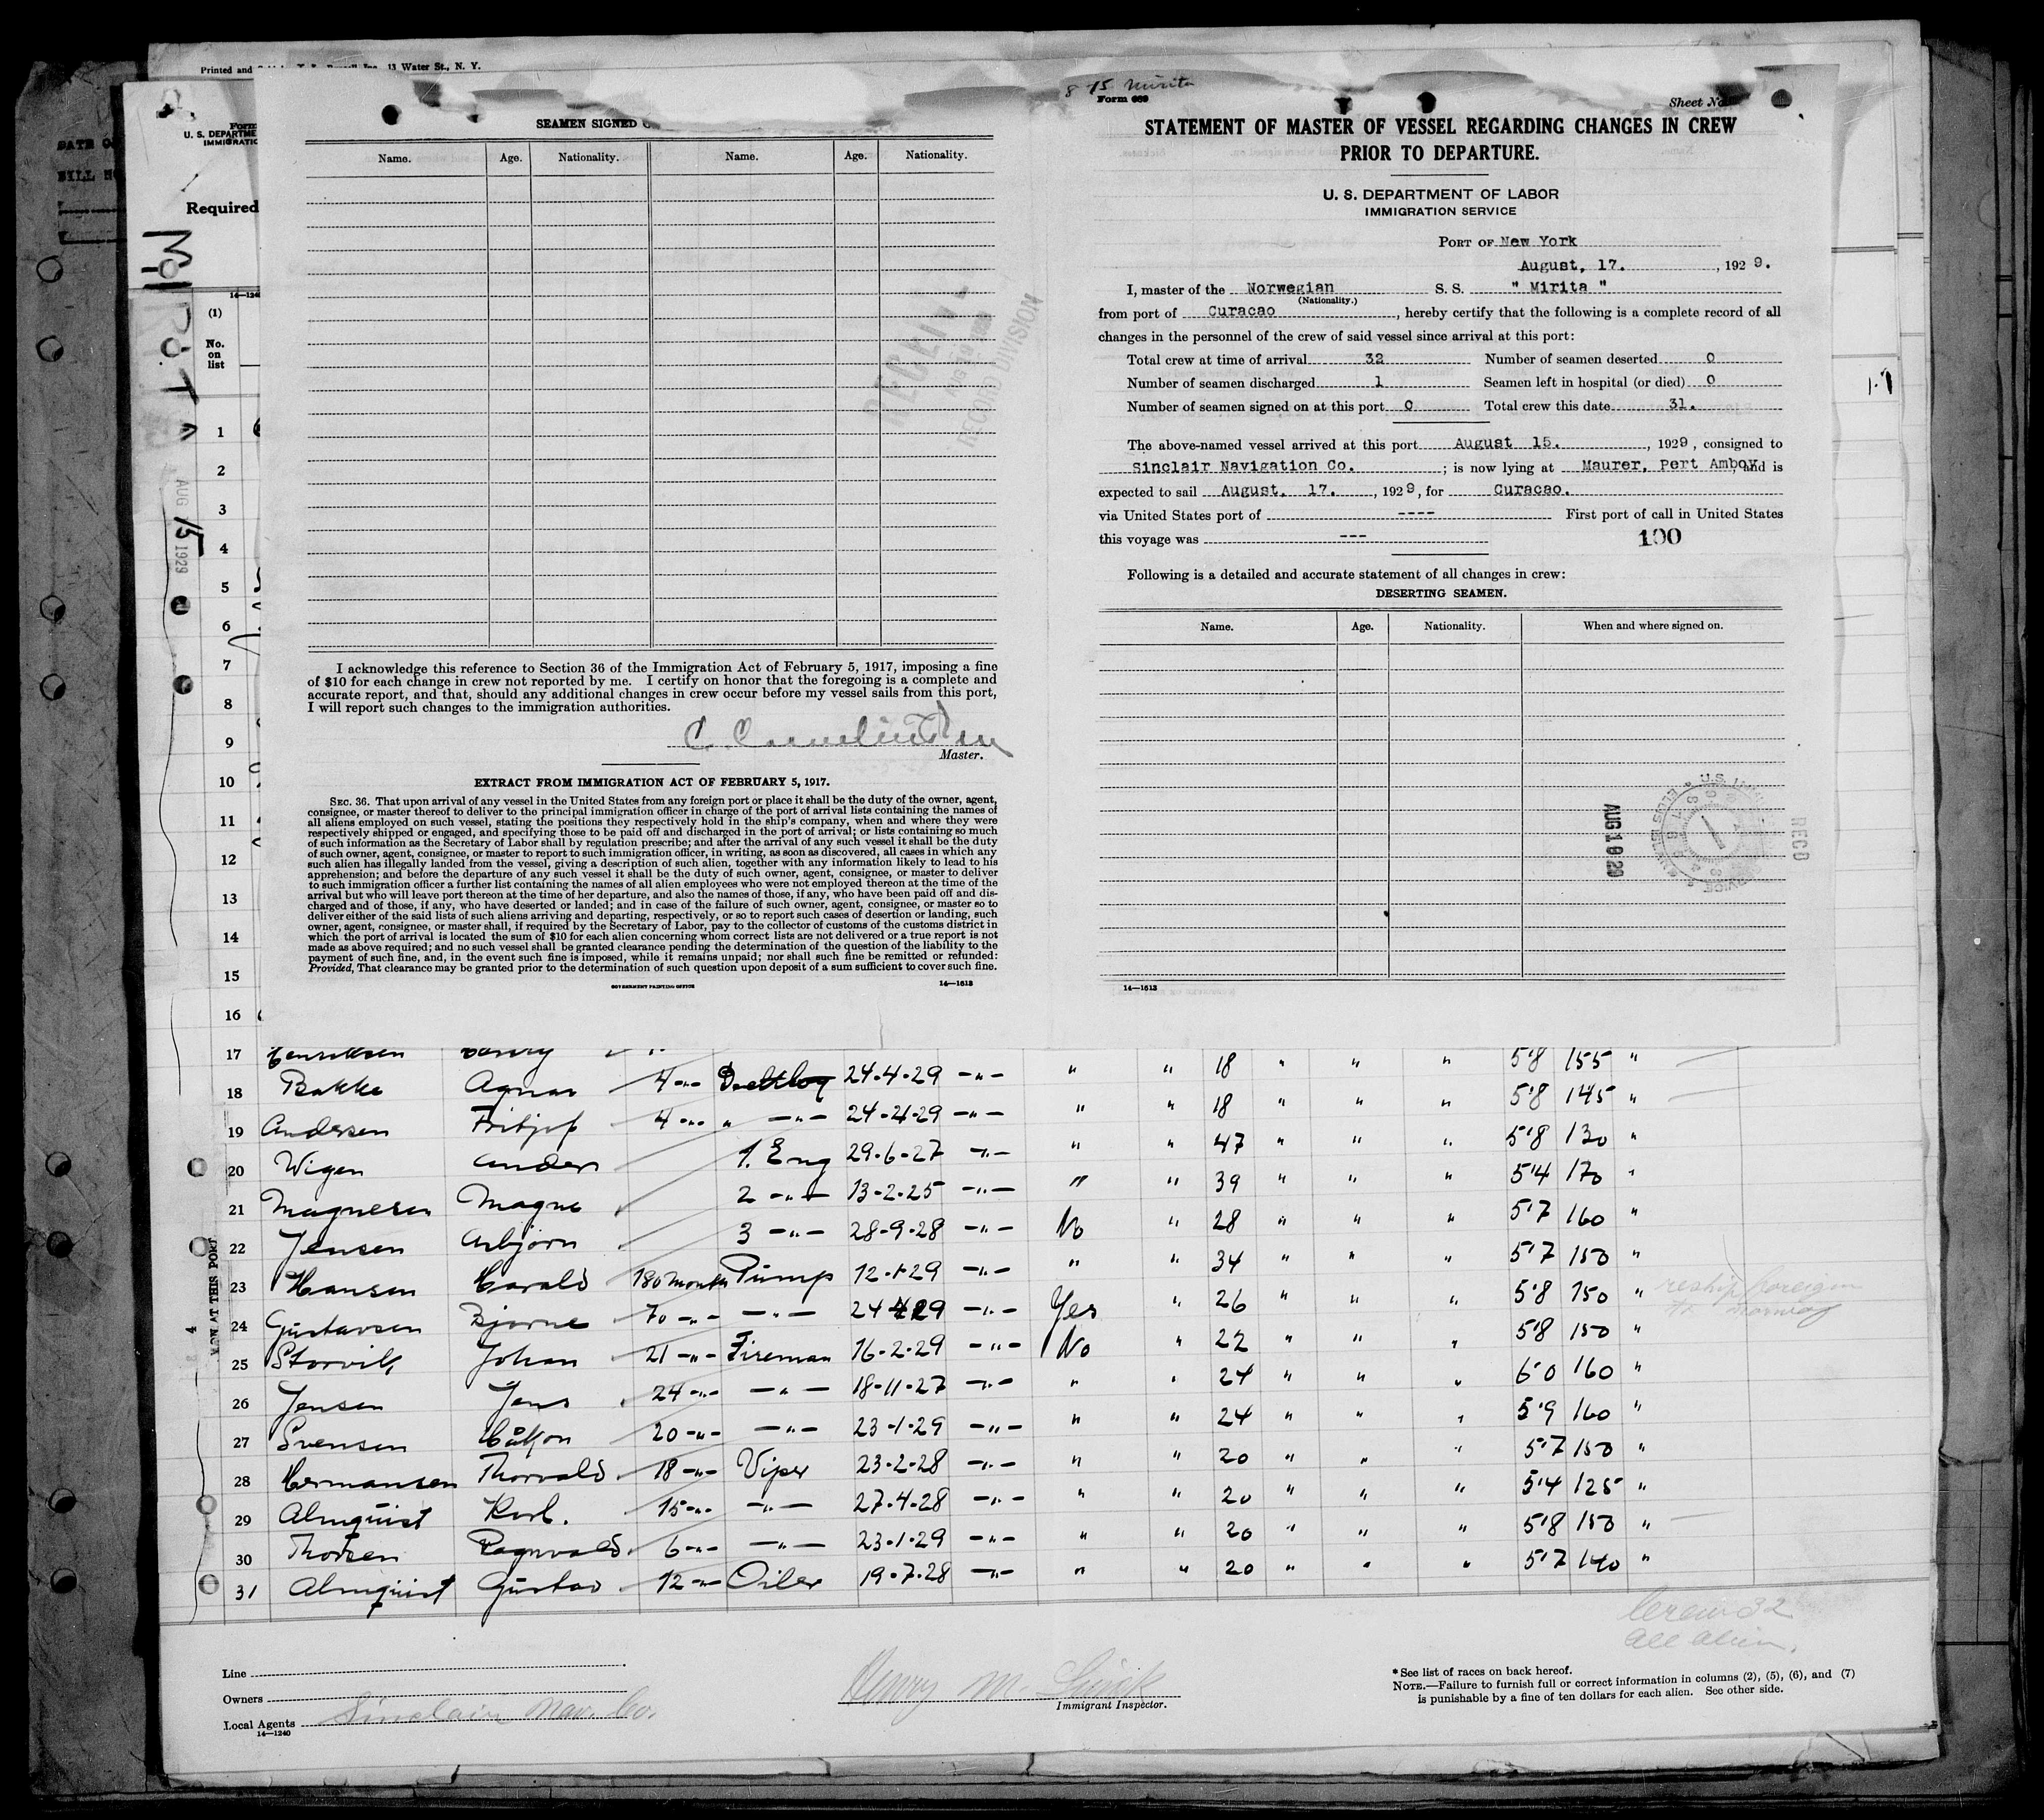 Printed and
13 Water St., N. Y.
U. S. DEPARTME
IMMIGRATIO
Required
(1)
No.
on
list
1
2
3
4
5
6
7
8
9
10
11
12
13
14
15
16
AUG 15 1929
SEAMEN SIGNED
Name. Age. Nationality. Name. Age. Nationality.
RECORD DIVISION
I acknowledge this reference to Section 36 of the Immigration Act of February 5, 1917, imposing a fine
of $10 for each change in crew not reported by me. I certify on honor that the foregoing is a complete and
accurate report, and that, should any additional changes in crew occur before my vessel sails from this port,
I will report such changes to the immigration authorities.
Master.
EXTRACT FROM IMMIGRATION ACT OF FEBRUARY 5, 1917.
SEC. 36. That upon arrival of any vessel in the United States from any foreign port or place it shall be the duty of the owner, agent,
consignee, or master thereof to deliver to the principal immigration officer in charge of the port of arrival lists containing the names of
all aliens employed on such vessel, stating the positions they respectively hold in the ship's company, when and where they were
respectively shipped or engaged, and specifying those to be paid off and discharged in the port of arrival; or lists containing so much
of such information as the Secretary of Labor shall by regulation prescribe; and after the arrival of any such vessel it shall be the duty
of such owner, agent, consignee, or master to report to such immigration officer, in writing, as soon as discovered, all cases in which any
such alien has illegally landed from the vessel, giving a description of such alien, together with any information likely to lead to his
apprehension; and before the departure of any such vessel it shall be the duty of such owner, agent, consignee, or master to deliver
to such immigration officer a further list containing the names of all alien employees who were not employed thereon at the time of the
arrival but who will leave port thereon at the time of her departure, and also the names of those, if any, who have been paid off and dis-
charged and of those, if any, who have deserted or landed; and in case of the failure of such owner, agent, consignee, or master so to
deliver either of the said lists of such aliens arriving and departing, respectively, or so to report such cases of desertion or landing, such
owner, agent, consignee, or master shall, if required by the Secretary of Labor, pay to the collector of customs of the customs district in
which the port of arrival is located the sum of $10 for each alien concerning whom correct lists are not delivered or a true report is not
made as above required; and no such vessel shall be granted clearance pending the determination of the question of the liability to the
payment of such fine, and, in the event such fine is imposed, while it remains unpaid; nor shall such fine be remitted or refunded:
Provided, That clearance may be granted prior to the determination of such question upon deposit of a sum sufficient to cover such fine.
GOVERNMENT PRINTING OFFICE 14—1613
8 15 Mirita
Form 689 Sheet No.
STATEMENT OF MASTER OF VESSEL REGARDING CHANGES IN CREW
PRIOR TO DEPARTURE.
U. S. DEPARTMENT OF LABOR
IMMIGRATION SERVICE
PORT OF New York
August, 17. , 1929.
I, master of the Norwegian S. S. " Mirita "
(Nationality.)
from port of Curacao , hereby certify that the following is a complete record of all
changes in the personnel of the crew of said vessel since arrival at this port:
Total crew at time of arrival 32 Number of seamen deserted 0
Number of seamen discharged 1 Seamen left in hospital (or died) 0
Number of seamen signed on at this port 0 Total crew this date 31.
The above-named vessel arrived at this port August 15. , 1929, consigned to
Sinclair Navigation Co. ; is now lying at Maurer, Pert Amboy, and is
expected to sail August, 17. , 1929, for Curacao.
via United States port of ---- First port of call in United States
this voyage was ---
100
Following is a detailed and accurate statement of all changes in crew:
DESERTING SEAMEN.
Name. Age. Nationality. When and where signed on.
AUG 19 29
RECD
14—1613
17 Henriksen 18 " " " 5'8 155 "
18 Bakke Agnar 4 -"- 24-4-29 -"- " " 18 " " " 5'8 145 "
19 Andersen Fritjof 4 -"- " -"- 24-4-29 -"- " " 47 " " " 5'8 130 "
20 Wigen Anders 1. Eng 29-6-27 -"- " " 39 " " " 5'4 170 "
21 Magnesen Magne 2 -"- 13-2-25 -"- " " 28 " " " 5'7 160 "
22 Jensen Asbjørn 3 -"- 28-9-28 -"- No " 34 " " " 5'7 150 "
23 Hansen Harald 180 month Pump 12-1-29 -"- " " 26 " " " 5'8 150 " reship foreign
24 Gustavsen Bjarne 70 -"- -"- 24 4 29 -"- Yes " 22 " " " 5'8 150 "
25 Storvik Johan 21 -"- Fireman 16-2-29 -"- No " 24 " " " 6'0 160 "
26 Jensen Jens 24 -"- -"- 18-11-27 -"- " " 24 " " " 5'9 160 "
27 Svensen Håkon 20 -"- -"- 23-1-29 -"- " " 20 " " " 5'7 150 "
28 Hermansen Thorvald 18 -"- Viper 23-2-28 -"- " " 20 " " " 5'4 125 "
29 Almquist Karl. 15 -"- -"- 27-4-28 -"- " " 20 " " " 5'8 150 "
30 Thorsen Ragnvald 6 -"- -"- 23-1-29 -"- " " 20 " " " 5'7 140 "
31 Almquist Gustav 12 -"- Oiler 19-7-28 -"- "
Crew 32
All alien.
Line
Owners
Local Agents Sinclair Nav. Co.
14—1240
Henry M.
Immigrant Inspector.
* See list of races on back hereof.
NOTE.—Failure to furnish full or correct information in columns (2), (5), (6), and (7)
is punishable by a fine of ten dollars for each alien. See other side.